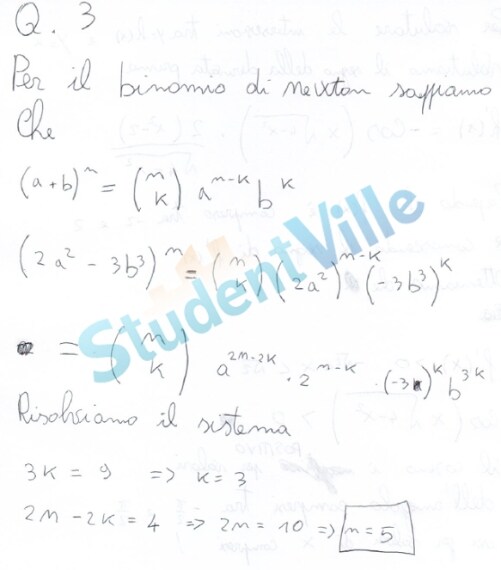 Q. 3
Per il binomio di Newton sappiamo
che
(a+b)^n = (n k) a^{n-k} b^k
(2a² - 3b³)^n = (n k) (2a²)^{n-k} (-3b³)^k
= (n k) a^{2n-2k} · 2^{n-k} · (-3)^k b^{3k}
Risolviamo il sistema
3k = 9 => k = 3
2n - 2k = 4 => 2n = 10 => n = 5
StudentVille